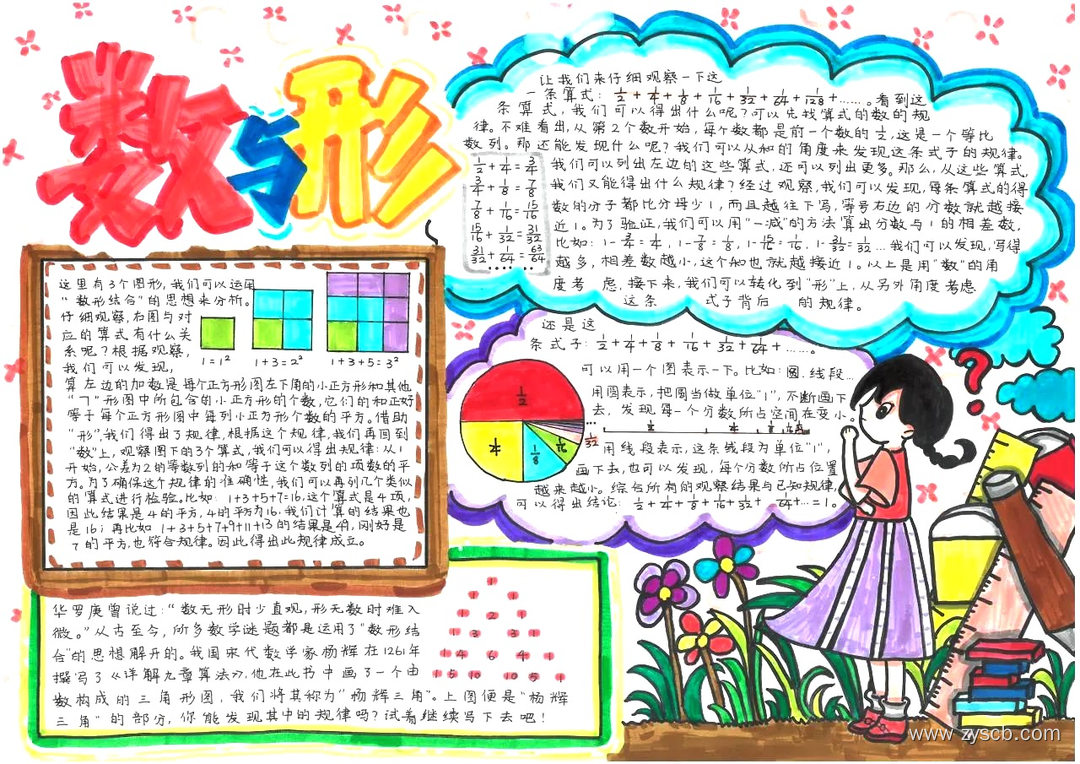 数与形
让我们来仔细观察一下这
一条算式：1/2+1/4+1/8+1/16+1/32+1/64+1/128+……。看到这
条算式，我们可以得出什么呢？可以先找算式的数的规
律。不难看出，从第2个数开始，每个数都是前一个数的1/2，这是一个等比
数列。那还能发现什么呢？我们可以从和的角度来发现这条式子的规律。
1/2+1/4=3/4
3/4+1/8=7/8
7/8+1/16=15/16
15/16+1/32=31/32
31/32+1/64=63/64
……
我们可以列出左边的这些算式，还可以列出更多。那么，从这些算式，
我们又能得出什么规律？经过观察，我们可以发现，每条算式的得
数的分子都比分母少1，而且越往下写，等号右边的分数就越接
近1。为了验证，我们可以用“一减”的方法算出分数与1的相差数，
比如：1-3/4=1/4，1-7/8=1/8，1-15/16=1/16，1-31/32=1/32…我们可以发现，写得
越多，相差数越小，这个和也就越接近1。以上是用“数”的角
度考虑，接下来，我们可以转化到“形”上，从另外角度考虑
这条式子背后的规律。
这里有3个图形，我们可以运用
“数形结合”的思想来分析。
仔细观察，右图与对
应的算式有什么关
系呢？根据观察，
我们可以发现，
1=1²
1+3=2²
1+3+5=3²
算左边的加数是每个正方形图左下角的小正方形和其他
“㇕”形图中所包含的小正方形的个数，它们的和正好
等于每个正方形图中每列小正方形个数的平方。借助
“形”，我们得出了规律，根据这个规律，我们再回到
“数”上，观察图下的3个算式，我们可以得出规律：从1
开始，公差为2的等数列的和等于这个数列的项数的平
方。为了确保这个规律的准确性，我们可以再列几个类似
的算式进行检验。比如：1+3+5+7=16，这个算式是4项，
因此结果是4的平方，4的平方为16。我们计算的结果也
是16；再比如 1+3+5+7+9+11+13的结果是49，刚好是
7的平方，也符合规律。因此得出此规律成立。
还是这
条式子：1/2+1/4+1/8+1/16+1/32+1/64+……。
可以用一个图表示一下。比如：圆，线段…
用圆表示，把圆当做单位“1”，不断画下
去，发现每一个分数所占空间在变小。
1/2
1/4
1/8
1/16
1/32
…
1/2 1/4 1/8
用线段表示，这条线段为单位“1”，
画下去，也可以发现，每个分数所占位置
越来越小。综合所有的观察结果与已知规律，
可以得出结论：1/2+1/4+1/8+1/16+1/32+1/64+…=1。
?
华罗庚曾说过：“数无形时少直观，形无数时难入
微。”从古至今，所多数学谜题都是运用了“数形结
合”的思想解开的。我国宋代数学家杨辉在1261年
撰写了《详解九章算法》，他在此书中画了一个由
数构成的三角形图，我们将其称为“杨辉三角”。上图便是“杨辉
三角”的部分，你能发现其中的规律吗？试着继续写下去吧！
1
1 1
1 2 1
1 3 3 1
1 4 6 4 1
1 5 10 10 5 1
www.zyscb.com